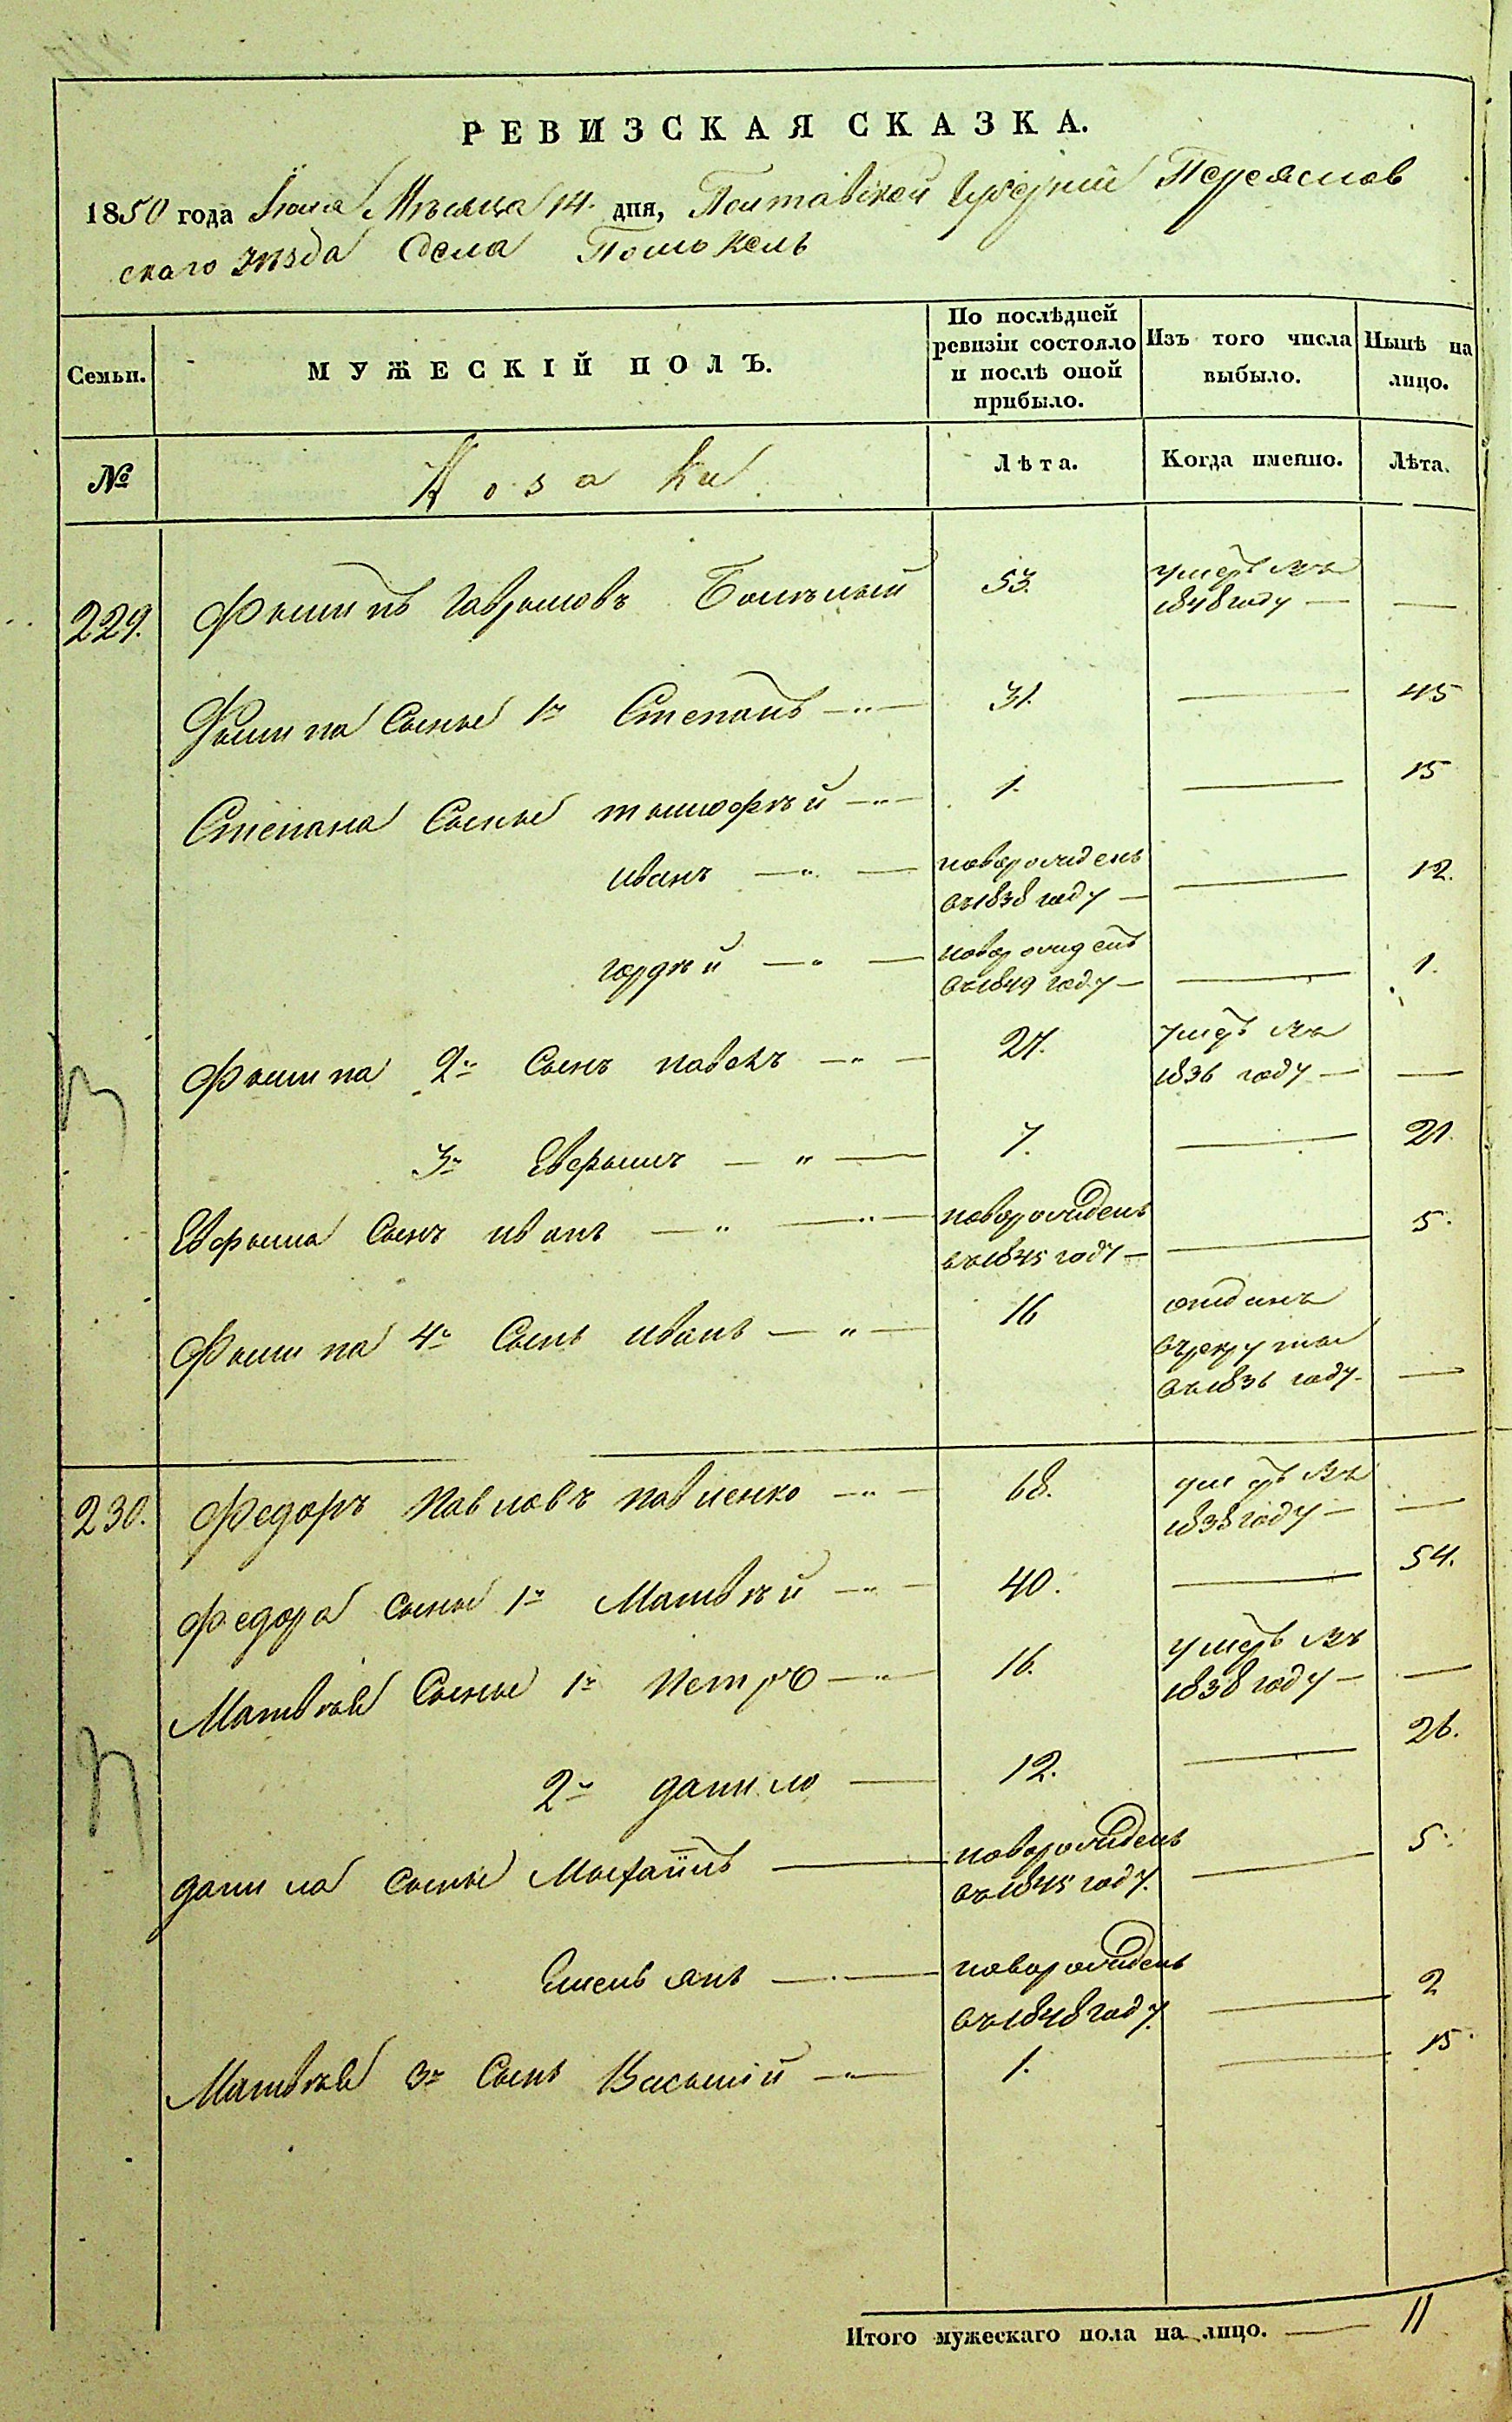 РЕВИЗСКАЯ СКАЗКА.
1850 года Іюля Мѣсяца 14. дня, Полтавской Губерніи Переяслов
скаго уѣзда Села Помокель
Семьи.
МУЖЕСКІЙ ПОЛЪ.
По послѣдней
ревизіи состояло
и послѣ оной
прибыло.
Изъ того числа
выбыло.
Нынѣ на
лицо.
№
Козаки
Лѣта.
Когда именно.
Лѣта.
229. Филипъ Гавриловъ 53. умеръ въ
1848 году — —
Филипа Сыны 1й Степанъ 31. — 45
Степана Сыны тимофѣй 1. — 15
иванъ новорожденъ — 12.
въ 1838 году
гордѣй новорожденъ — 1.
въ 1849 году
Филипа 2й Сынъ павелъ 27. умеръ въ
1836 году — —
3й Евфимъ 7. — 21.
Евфима Сынъ иванъ новорожденъ — 5.
въ 1845 году
Филипа 4й Сынъ иванъ 16 отданъ
въ рекруты
въ 1836 году —
230. Федоръ Павловъ павленко 68. умеръ въ
1838 году — —
Федора Сыны 1й Матвѣй 40. — 54.
Матвѣя Сыны 1й Петръ 16. умеръ въ
1838 году — —
2й данило 12. — 26.
данила Сыны Михаилъ новорожденъ — 5.
въ 1845 году.
Емельянъ новорожденъ
въ 1848 году. — 2
Матвѣя 3й Сынъ Василій 1. — 15.
Итого мужескаго пола на лицо. — 11